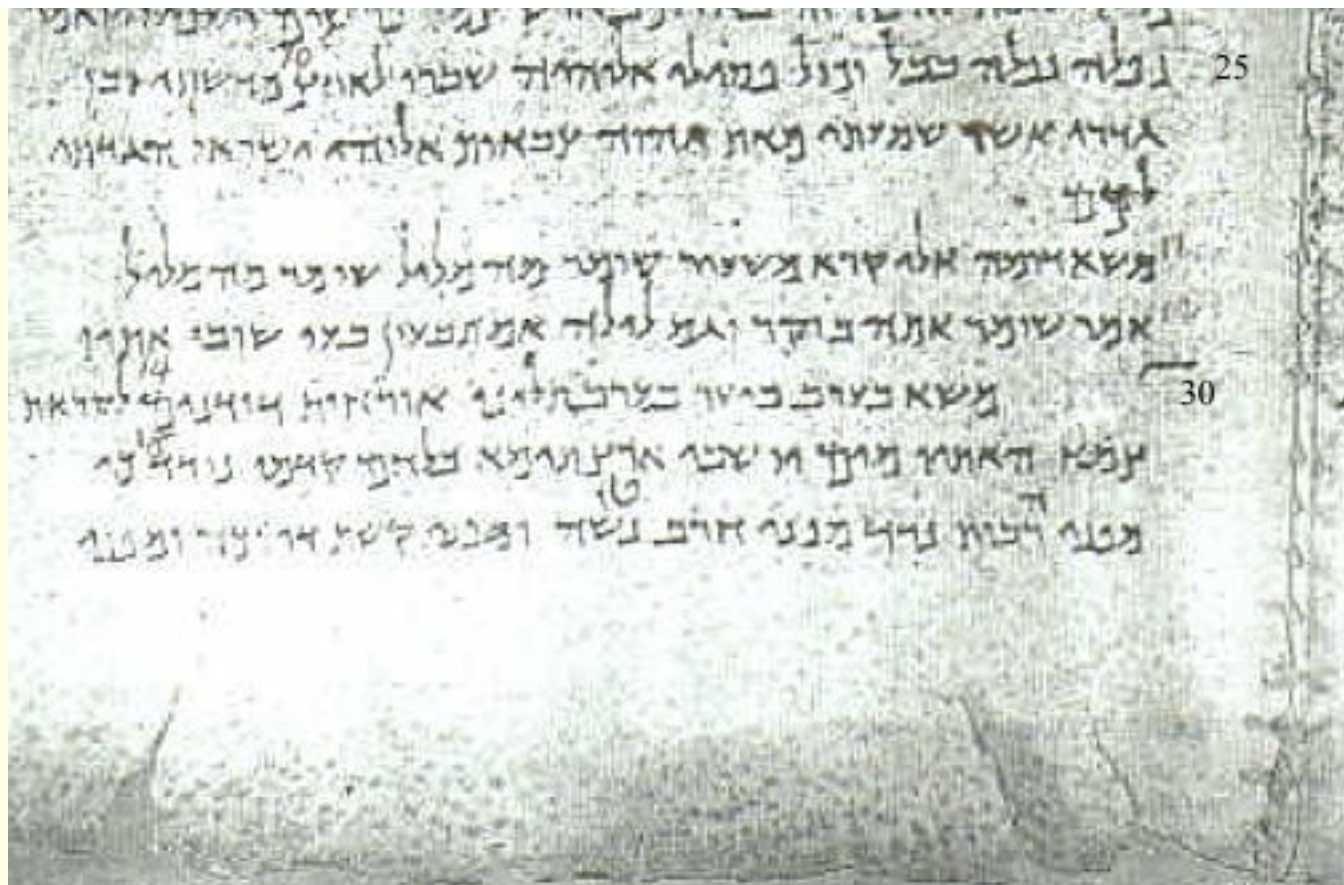 נפלה נפלה בבל וכול פסילי אלוהיה שברו לארץ 10 ובן 25
גדרי אשר שמעתי מאת יהוה צבאות אלוהי ישראל הגדתי
לכם
11 משא דומה אלי קרא משעיר שומר מה מליל שומר מה מליל
12 אמר שומר אתה בוקר וגם לילה אם תבעון בעו שובו
משא בערב ביער בערב תלינו 14 לקראת 30
צמא מים יושבי ארץ תימא בלחם קדמו 15 כי
מפני רבות נדד מפני חרב ומפני קשת ומפני